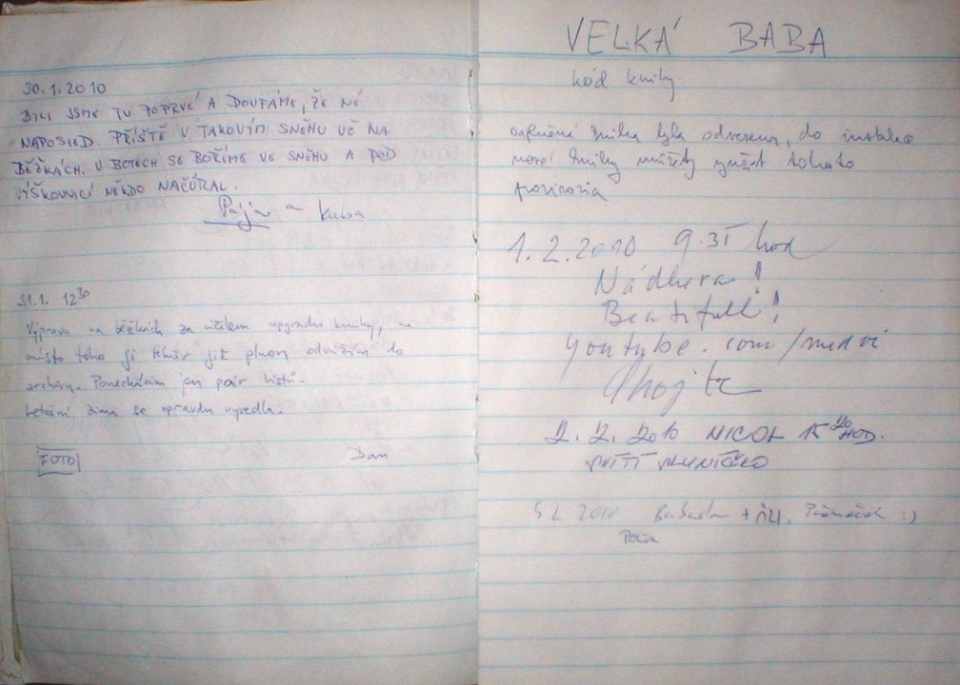 30.1.2010
BYLI JSME TU POPRVÉ A DOUFÁME, ŽE NE
NAPOSLED. PŘÍŠTĚ V TAKOVÍM SNĚHU UŽ NA
BĚŽKÁCH. V BOTECH SE BOŘÍME VE SNĚHU A POD
VÝŠKOVNICÍ NĚKDO NAČŮRAL.
Pája a Kuba
31.1. 12 30
Výprava na běžkách za účelem upgradu knihy, na
místo toho ji téměř již plnou odvážím do
archivu. Ponechávám jen pár listů.
Letošní zima se opravdu vyvedla.
FOTO Dan
VELKÁ BABA
kód knihy
kniha byla odvezena, do instalace
nové knihy můžete využít tohoto
provizoria
1.2.2010 9.31 hod
Nádhera!
Beatifull!
youtube.com/medvi
Ahojte
2.2.2010 NICOL 15 20 HOD.
SVÍTÍ SLUNÍČKO
2010 + :)